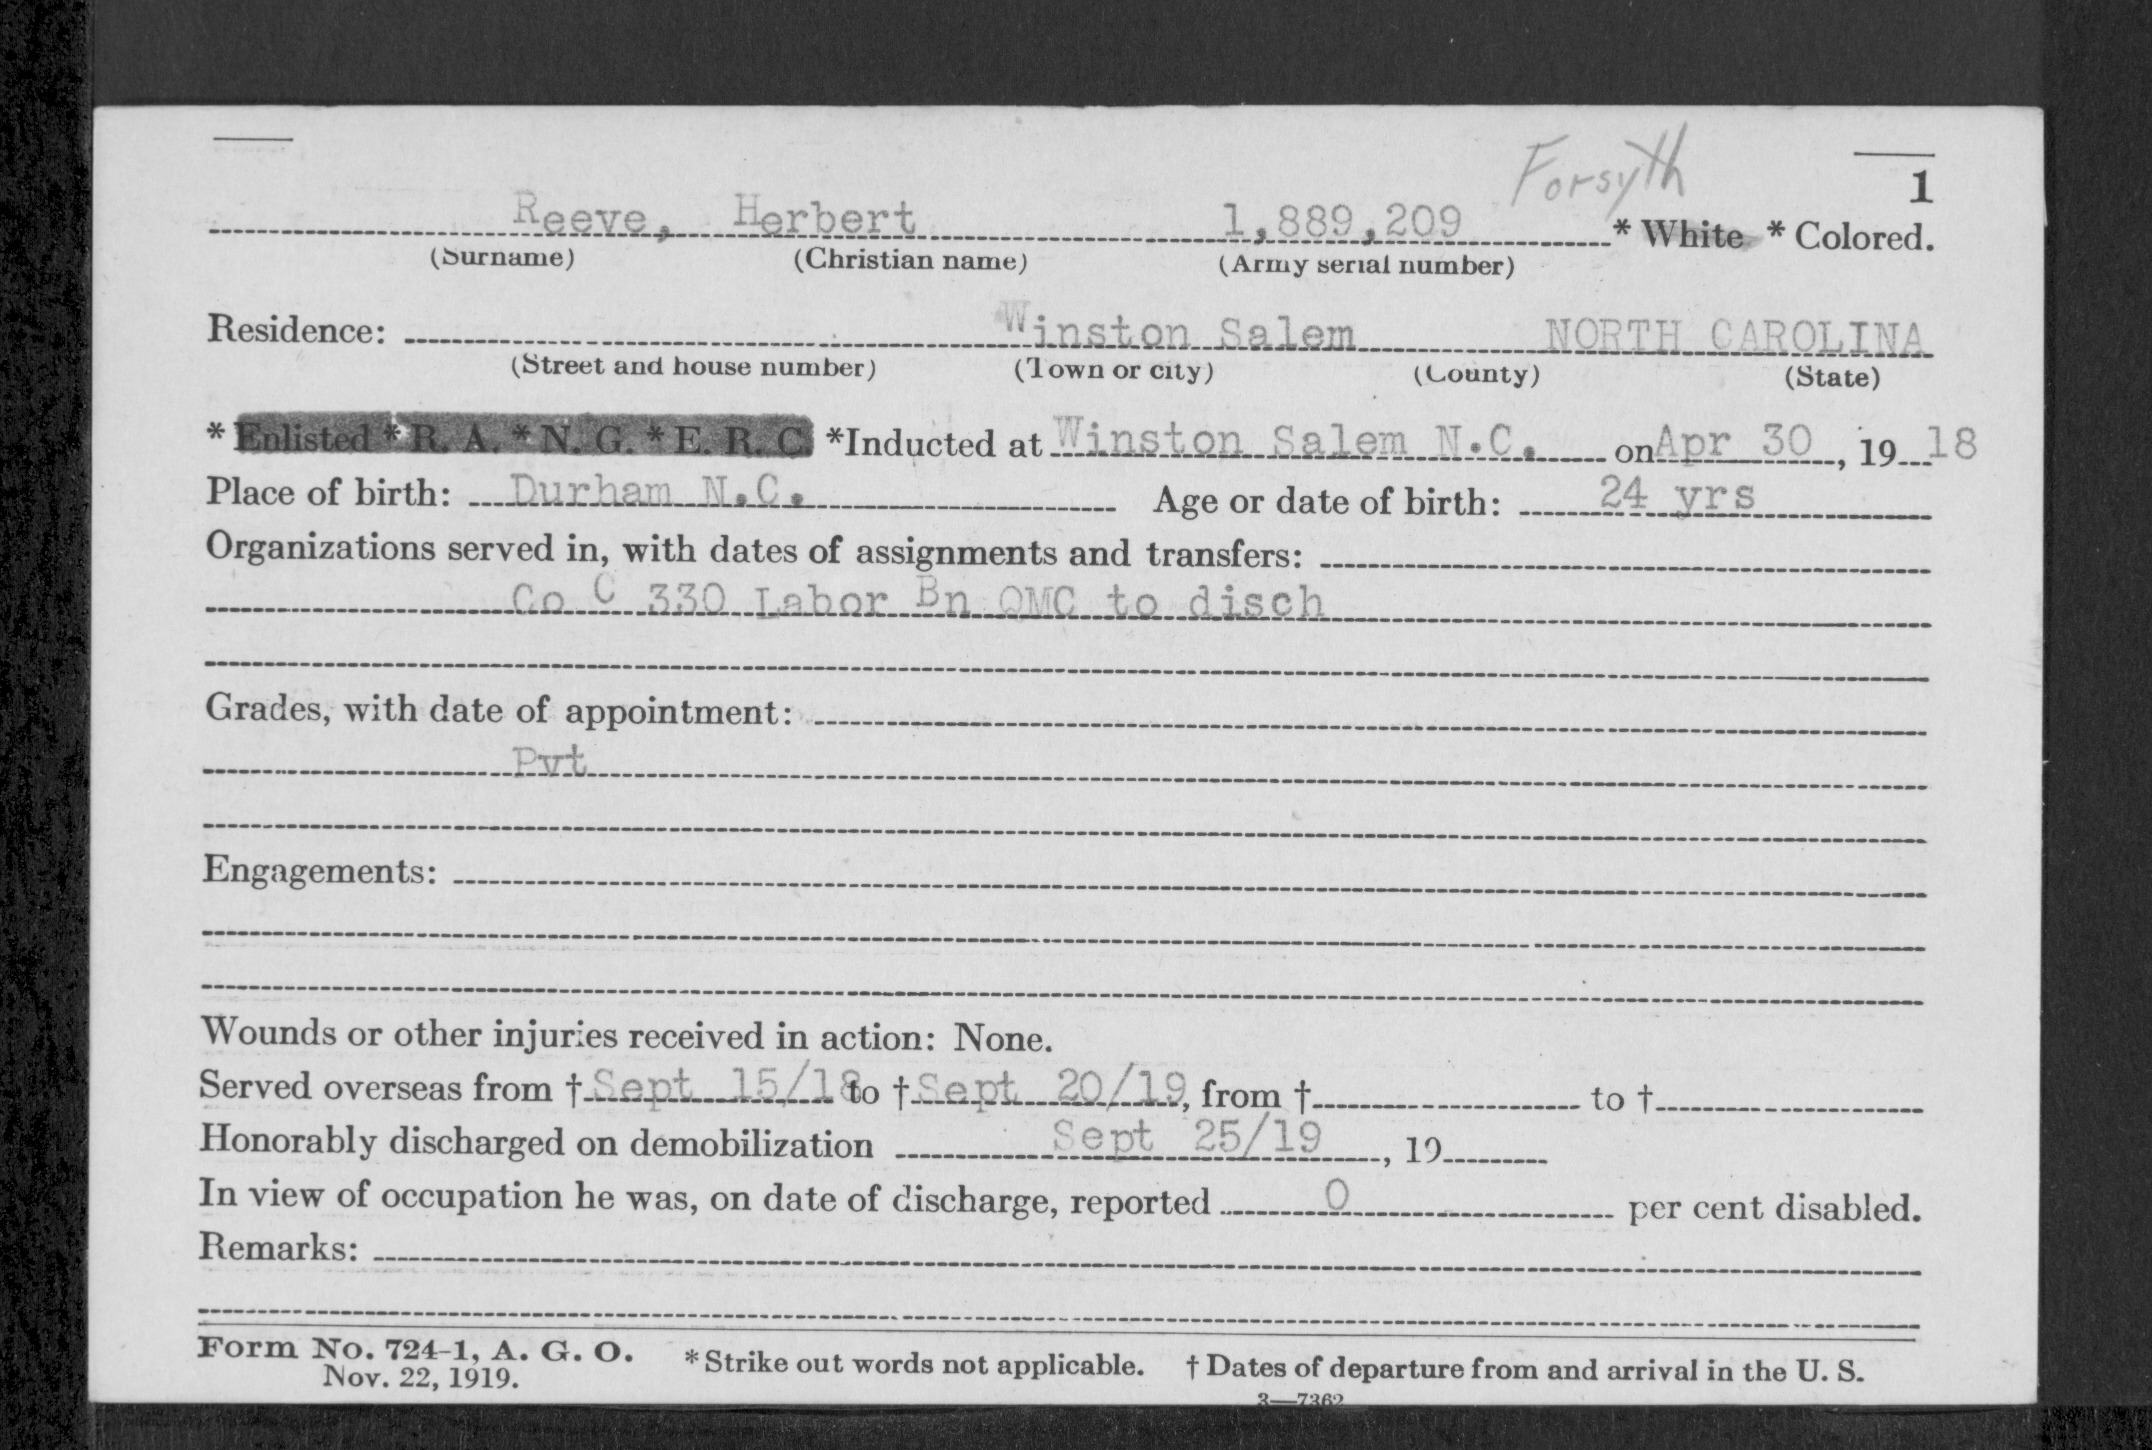 Forsyth
1
Reeve, Herbert 1,889,209 * White * Colored.
(Surname) (Christian name) (Army serial number)
Residence: Winston Salem NORTH CAROLINA
(Street and house number) (Town or city) (County) (State)
* Enlisted * R. A. * N. G. * E. R. C. *Inducted at Winston Salem N.C. on Apr 30, 1918
Place of birth: Durham N.C. Age or date of birth: 24 yrs
Organizations served in, with dates of assignments and transfers:
Co C 330 Labor Bn QMC to disch
Grades, with date of appointment:
Pvt
Engagements:
Wounds or other injuries received in action: None.
Served overseas from † Sept 15/18 to † Sept 20/19, from † to †
Honorably discharged on demobilization Sept 25/19, 19
In view of occupation he was, on date of discharge, reported 0 per cent disabled.
Remarks:
Form No. 724-1, A. G. O. * Strike out words not applicable. † Dates of departure from and arrival in the U. S.
Nov. 22, 1919.
3—7362